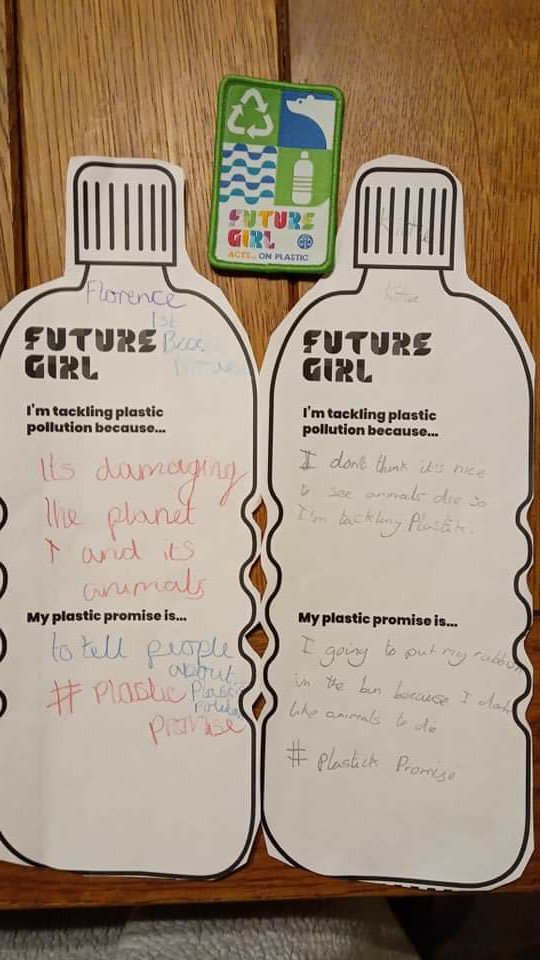 FUTURE
GIRL
ACTS... ON PLASTIC
Florence
1st
FUTURE
GIRL
I'm tackling plastic
pollution because...
Its damaging
the planet
and its
animals
My plastic promise is...
to tell people
about
# plastic
promise
Kittie
Kittie
FUTURE
GIRL
I'm tackling plastic
pollution because...
I don't think it's nice
to see animals die so
I'm tackling Plastik.
My plastic promise is...
I going to put my rubbon
in the ban because I dont
like animals to die
# plastick Promise